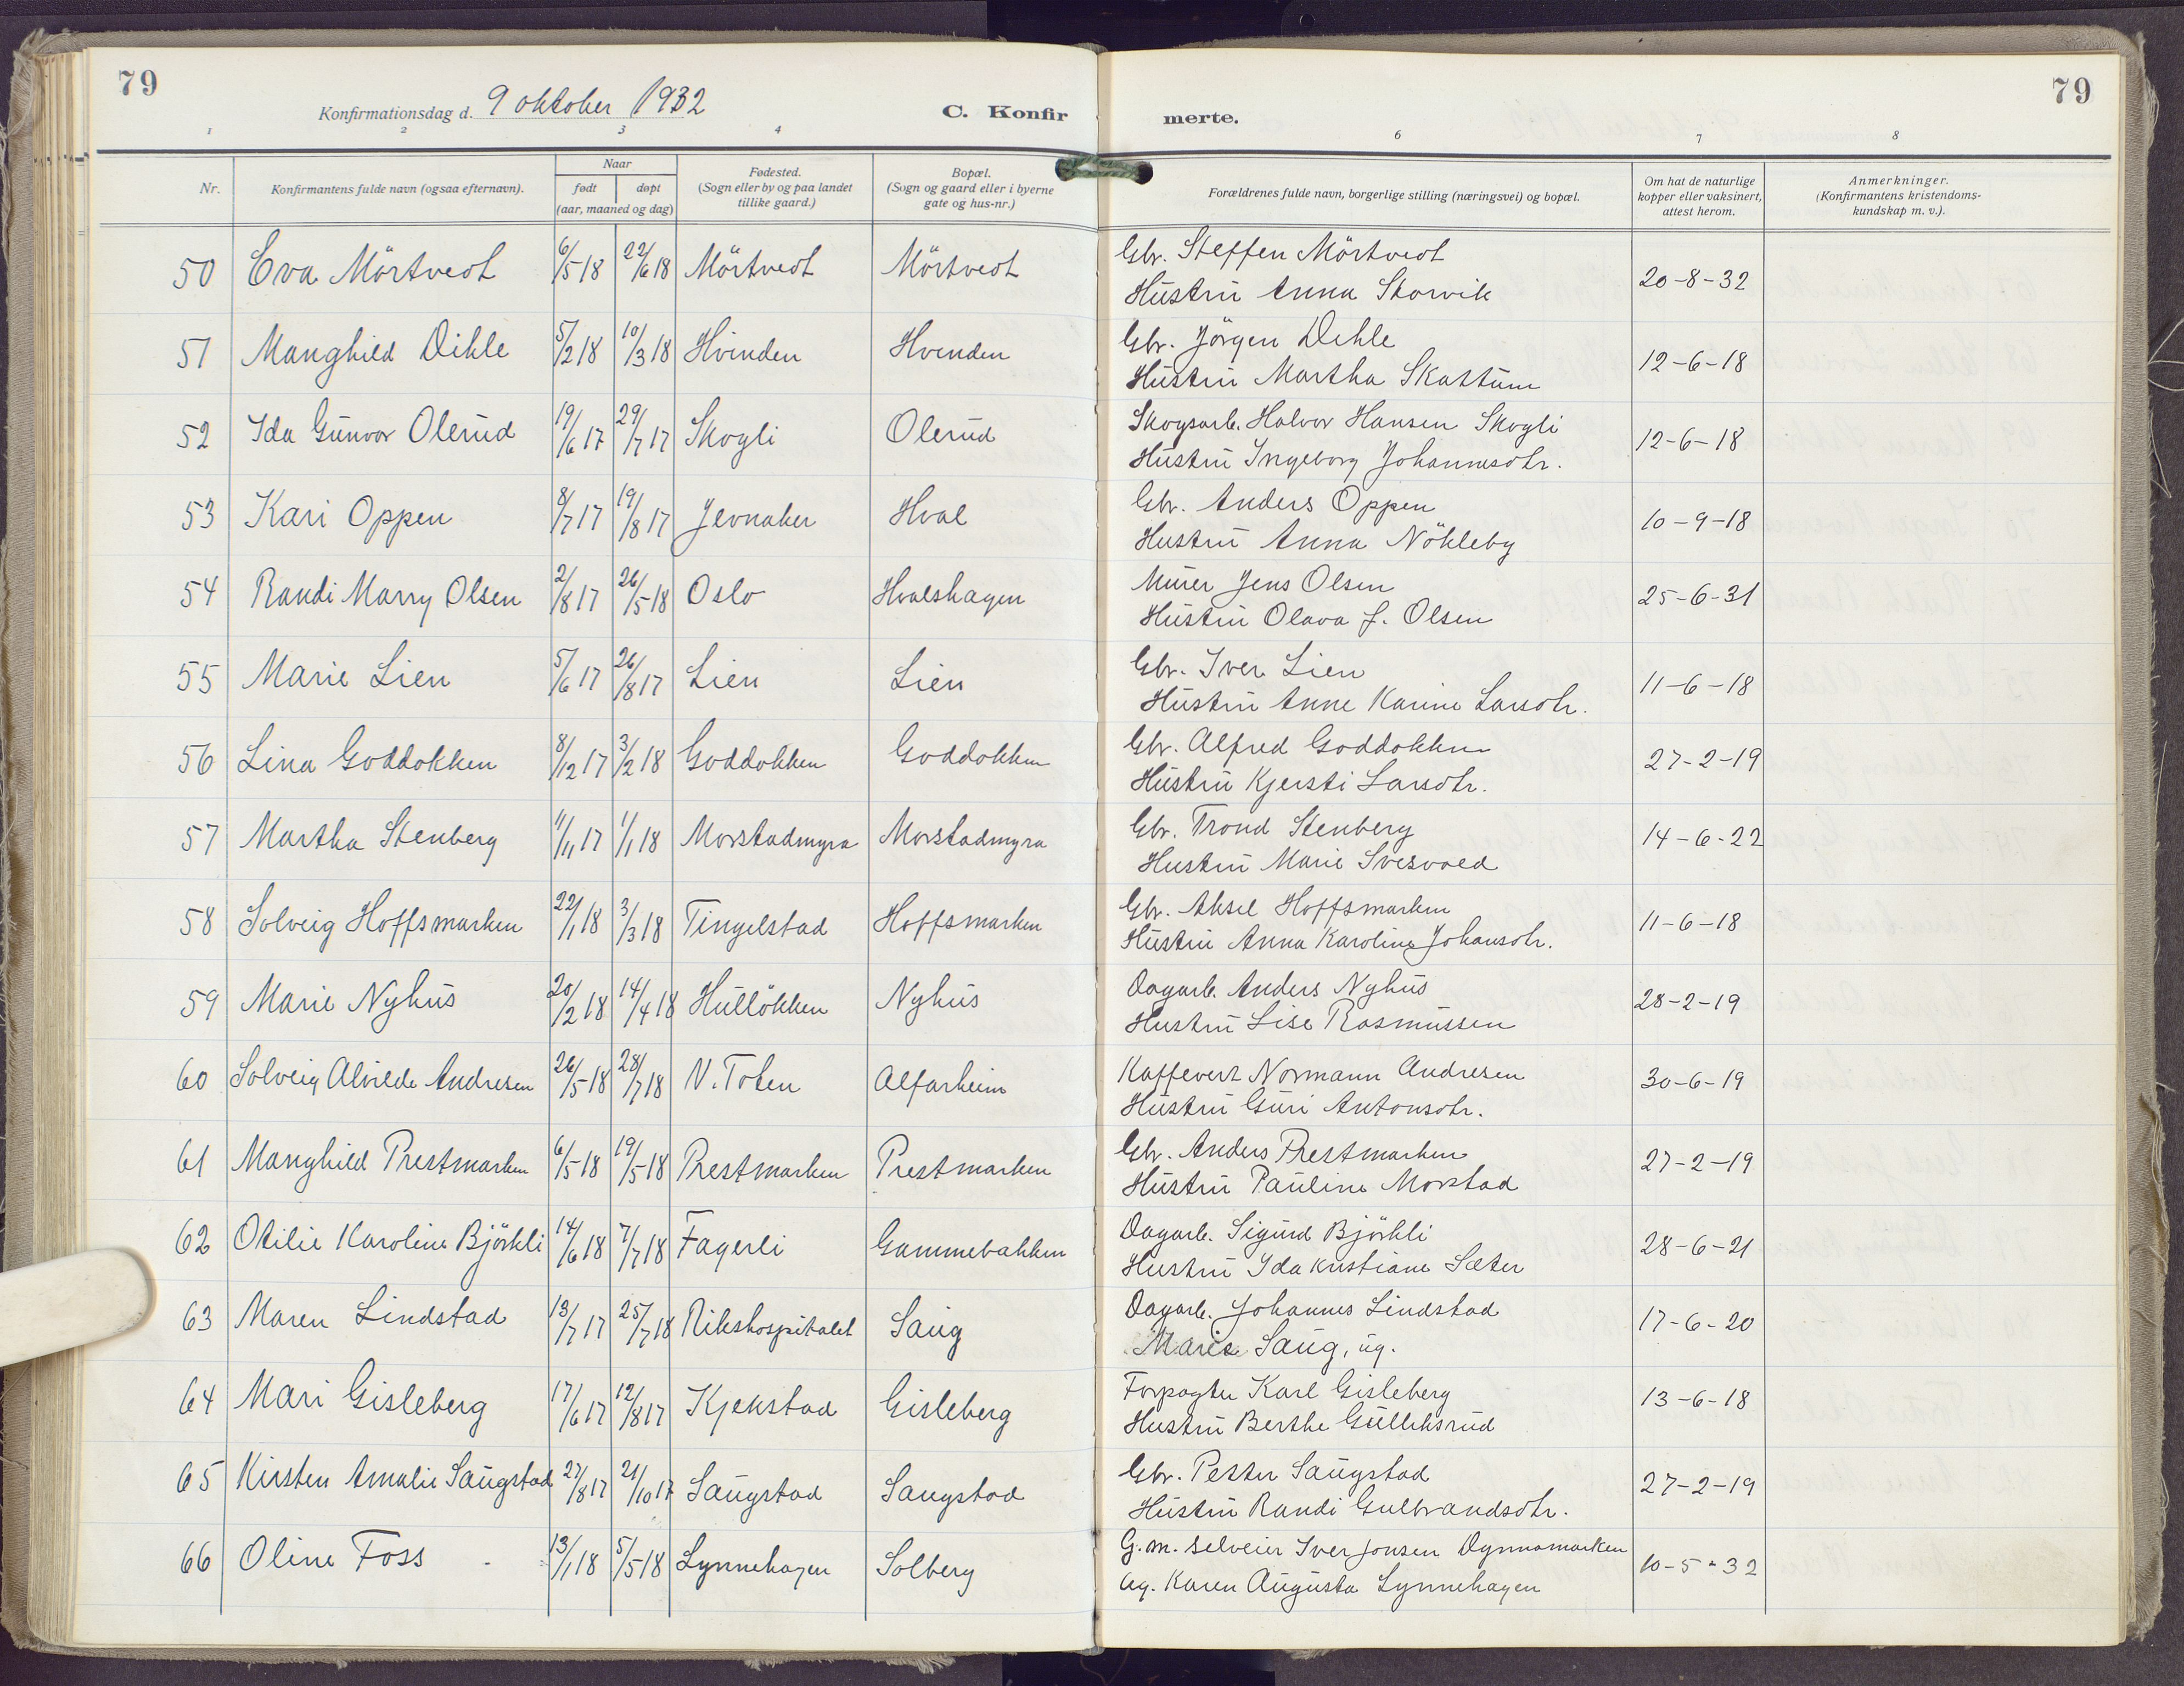 79
79
Konfirmationsdag d. 9 oktober 1932
C. Konfir
merte.
1 2 3 4 6 7 8
Nr.
Konfirmantens fulde navn (ogsaa efternavn).
Naar
født døpt
(aar, maaned og dag)
Fødested.
(Sogn eller by og paa landet
tillike gaard.)
Bopæl.
(Sogn og gaard eller i byerne
gate og hus-nr.)
Forældrenes fulde navn, borgerlige stilling (næringsvei) og bopæl.
Om hat de naturlige
kopper eller vaksinert,
attest herom.
Anmerkninger.
(Konfirmantens kristendoms-
kundskap m. v.).
50 Eva Mörtvedt 6/5 18 22/6 18 Mörtvedt Mörtvedt
Gbr. Steffen Mörtvedt
Hustru Anna Storvik
20-8-32
51 Manghild Dihle 5/2 18 10/3 18 Hvinden Hvinden
Gbr. Jörgen Dihle
Hustru Martha Skattum
12-6-18
52 Ida Gunvor Olerud 19/6 17 29/7 17 Skogli Olerud
Skogsarb. Halvor Hansen Skogli
Hustru Ingeborg Johannesdtr.
12-6-18
53 Kari Oppen 8/7 17 19/8 17 Jevnaker Hval
Gbr. Anders Oppen
Hustru Anna Nökleby
10-9-18
54 Randi Marry Olsen 2/8 17 26/5 18 Oslo Hvalshagen
Murer Jens Olsen
Hustru Olava J. Olsen
25-6-31
55 Marie Lien 5/6 17 26/8 17 Lien Lien
Gbr. Iver Lien
Hustru Anne Karine Larsdtr.
11-6-18
56 Lina Goddokken 8/12 17 3/2 18 Goddokken Goddokken
Gbr. Alfred Goddokken
Hustru Kjersti Larsdtr.
27-2-19
57 Martha Stenberg 11/11 17 1/1 18 Morstadmyra Morstadmyra
Gbr. Trond Stenberg
Hustru Marie Svesvold
14-6-22
58 Solveig Hoffsmarken 22/1 18 3/3 18 Tingelstad Hoffsmarken
Gbr. Aksel Hoffsmarken
Hustru Anna Karoline Johansdtr.
11-6-18
59 Marie Nyhus 20/2 18 14/4 18 Hullökken Nyhus
Dagarb. Anders Nyhus
Hustru Lise Rasmussen
28-2-19
60 Solveig Alvilde Andresen 26/5 18 28/7 18 V. Toten Alfarheim
Kaffevert Normann Andresen
Hustru Guri Antonsdtr.
30-6-19
61 Manghild Prestmarken 6/5 18 19/5 18 Prestmarken Prestmarken
Gbr. Anders Prestmarken
Hustru Pauline Morstad
27-2-19
62 Otilie Karoline Björkli 14/6 18 7/7 18 Fagerli Gammebakken
Dagarb. Sigurd Björkli
Hustru Ida Kristiane Sæter
28-6-21
63 Maren Lindstad 13/7 17 25/7 18 Rikshospitalet Saug
Dagarb. Johannes Lindstad
Marie Saug, ug.
17-6-20
64 Mari Gisleberg 17/6 17 12/8 17 Kjekstad Gisleberg
Forpagter Karl Gisleberg
Hustru Berthe Gulleksrud
13-6-18
65 Kirsten Amalie Saugstad 27/8 17 21/10 17 Saugstad Saugstad
Gbr. Petter Saugstad
Hustru Randi Gulbrandsdtr.
27-2-19
66 Oline Foss 13/1 18 5/5 18 Lynnehagen Solberg
G.m. selveier Iver Jonsen Dynnamarken
Ug. Karen Augusta Lynnehagen
10-5-32